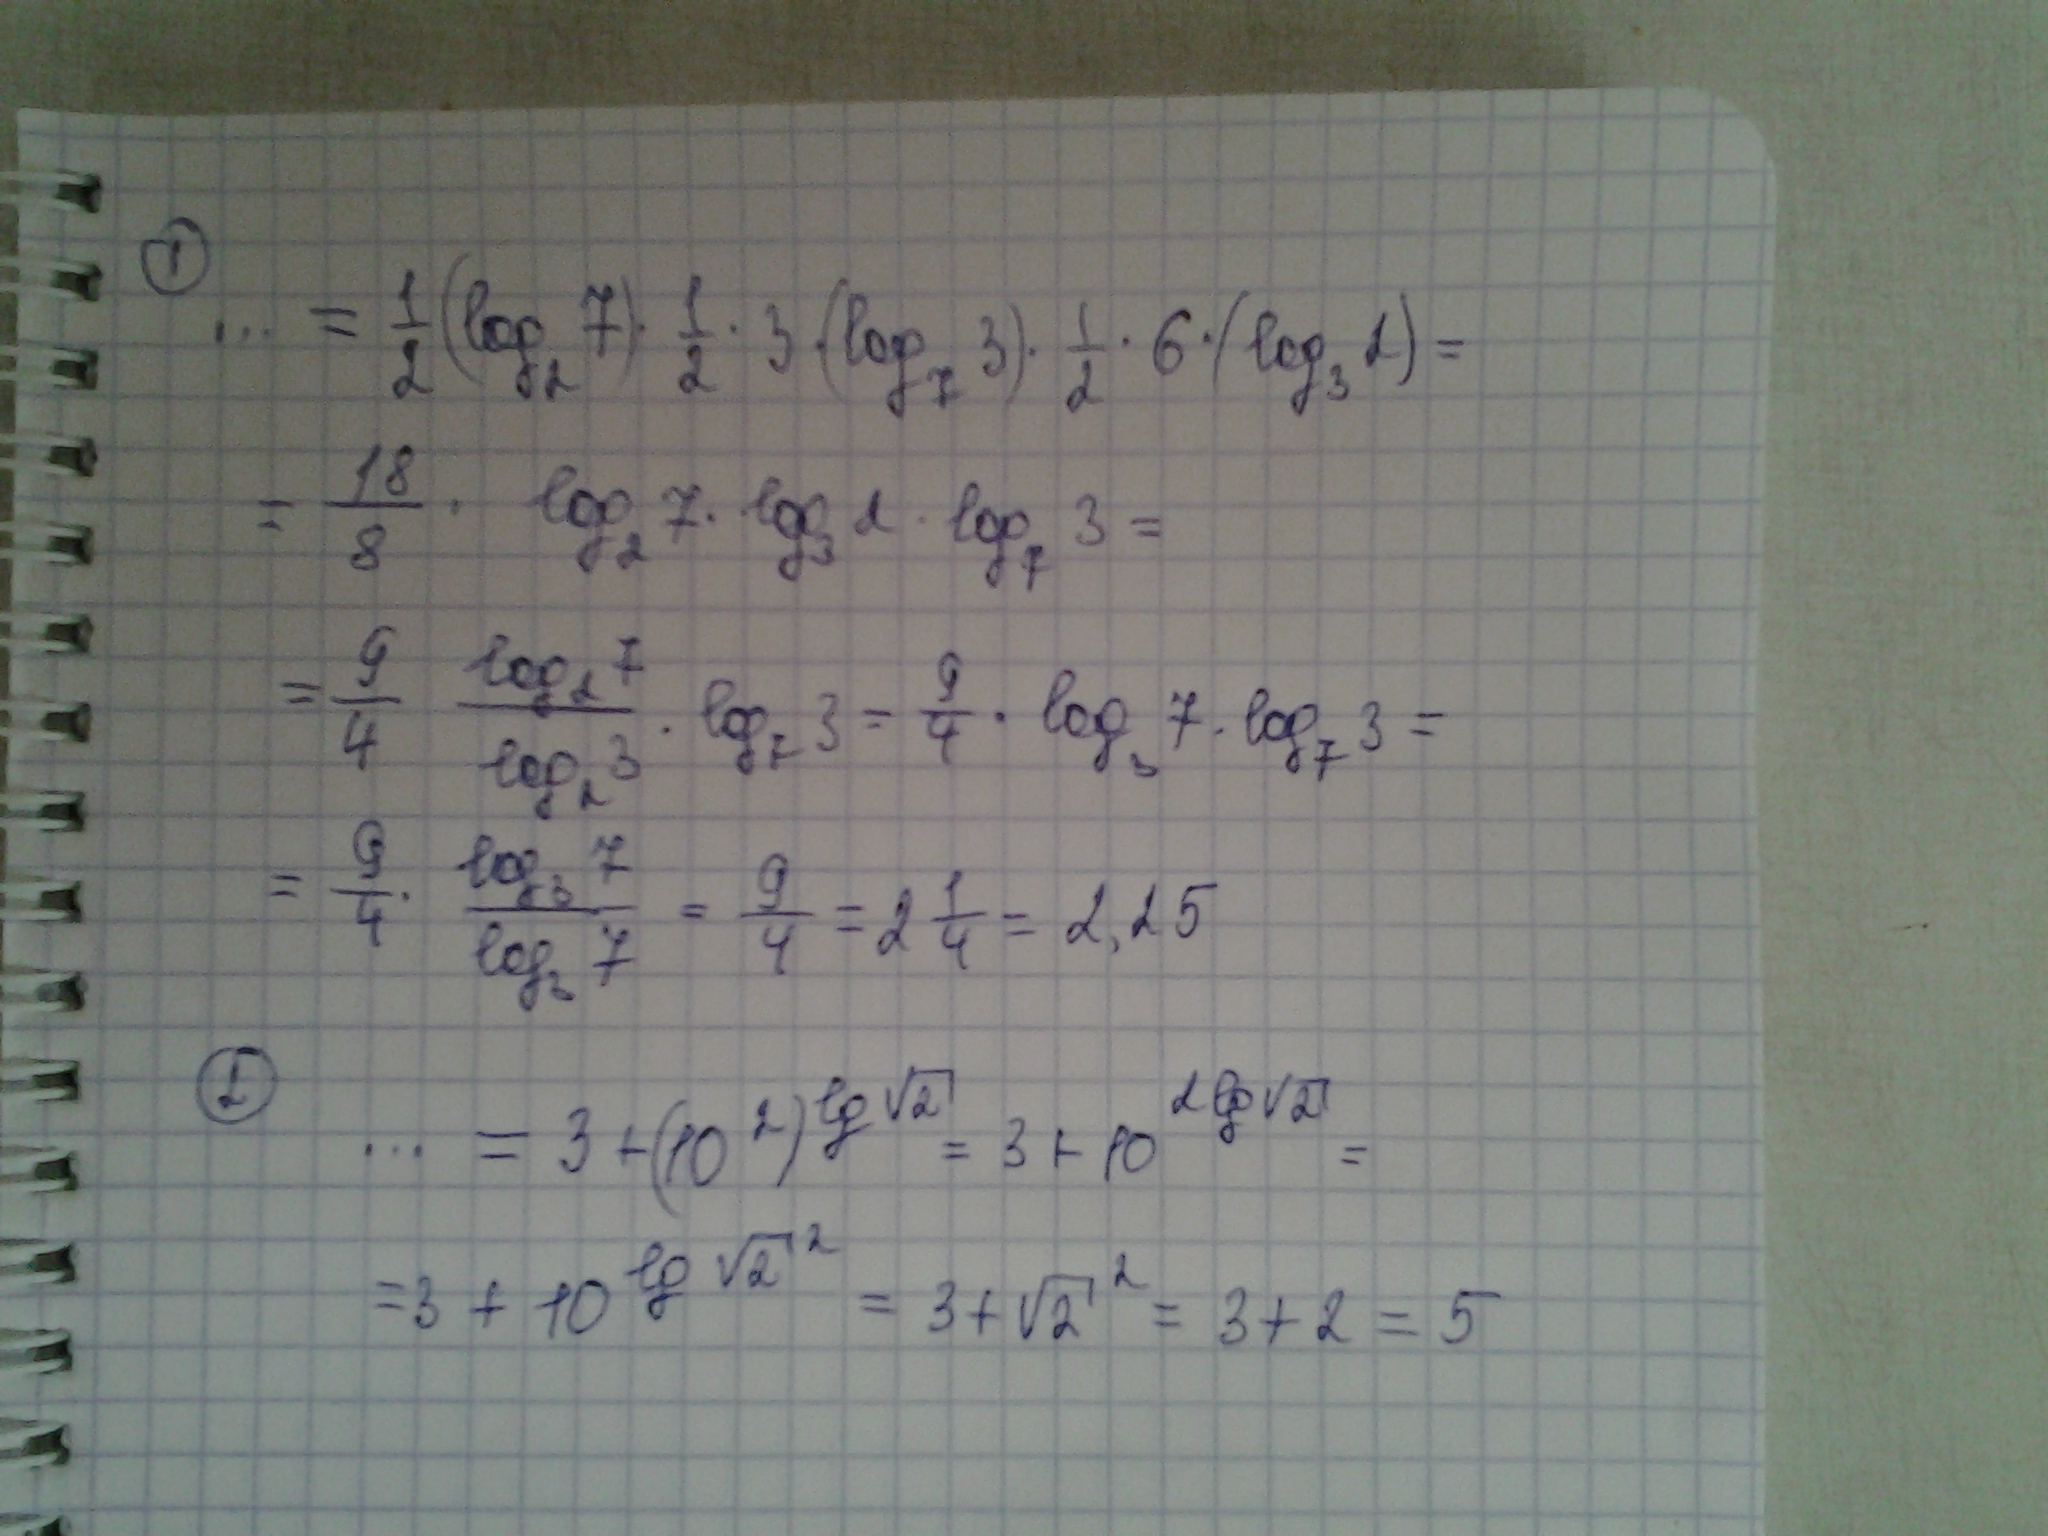 ①
... = 1/2 (log₂ 7) · 1/2 · 3 · (log₇ 3) · 1/2 · 6 · (log₃ 2) =
= 18/8 · log₂ 7 · log₃ 2 · log₇ 3 =
= 9/4 (log₂ 7)/(log₂ 3) · log₇ 3 = 9/4 · log₃ 7 · log₇ 3 =
= 9/4 · (log₃ 7)/(log₃ 7) = 9/4 = 2 1/4 = 2,25
②
... = 3 + (10²)^(lg √2) = 3 + 10^(2 lg √2) =
= 3 + 10^(lg √2²) = 3 + √2² = 3 + 2 = 5